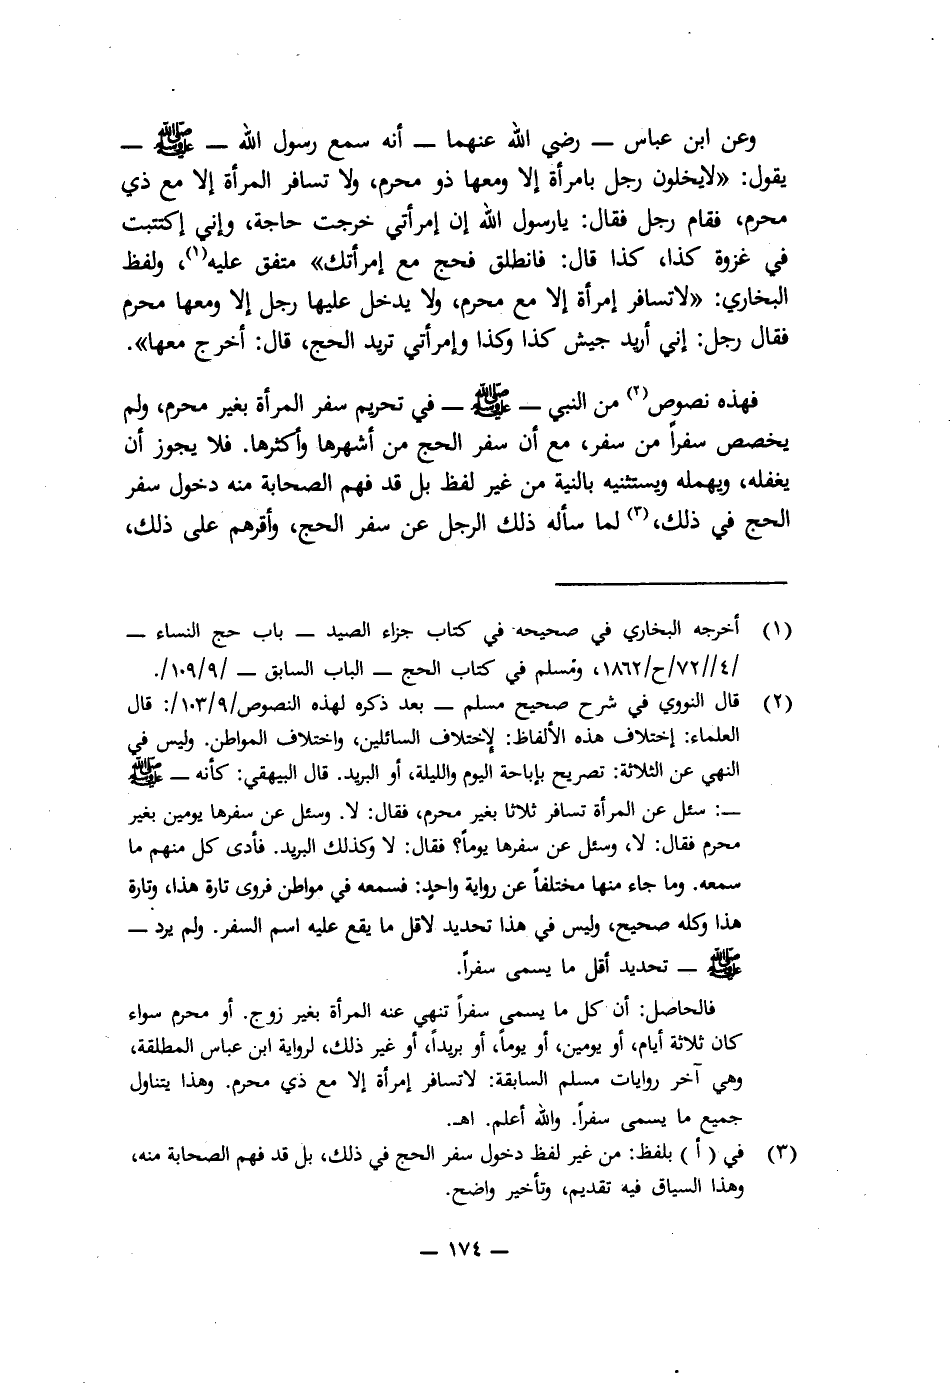 وعن ابن عباس — رضي الله عنهما — أنه سمع رسول الله — ﷺ —
يقول: «لايخلون رجل بامرأة إلا ومعها ذو محرم، ولا تسافر المرأة إلا مع ذي
محرم، فقام رجل فقال: يارسول الله إن إمرأتي خرجت حاجة، وإني إكتتبت
في غزوة كذا، كذا قال: فانطلق فحج مع إمرأتك» متفق عليه(١)، ولفظ
البخاري: «لاتسافر إمرأة إلا مع محرم، ولا يدخل عليها رجل إلا ومعها محرم
فقال رجل: إني أريد جيش كذا وكذا وإمرأتي تريد الحج، قال: أخرج معها».
فهذه نصوص(٢) من النبي — ﷺ — في تحريم سفر المرأة بغير محرم، ولم
يخصص سفراً من سفر، مع أن سفر الحج من أشهرها وأكثرها. فلا يجوز أن
يغفله، ويهمله ويستثنيه بالنية من غير لفظ بل قد فهم الصحابة منه دخول سفر
الحج في ذلك،(٣) لما سأله ذلك الرجل عن سفر الحج، وأقرهم على ذلك،
(١) أخرجه البخاري في صحيحه في كتاب جزاء الصيد — باب حج النساء —
/٤//٧٢/ح/١٨٦٢، ومُسلم في كتاب الحج — الباب السابق — /٩/١٠٩/.
(٢) قال النووي في شرح صحيح مسلم — بعد ذكره لهذه النصوص/٩/١٠٣/: قال
العلماء: إختلاف هذه الألفاظ: لإختلاف السائلين، واختلاف المواطن. وليس في
النهي عن الثلاثة: تصريح بإباحة اليوم والليلة، أو البريد. قال البيهقي: كأنه — ﷺ
—: سئل عن المرأة تسافر ثلاثا بغير محرم، فقال: لا. وسئل عن سفرها يومين بغير
محرم فقال: لا، وسئل عن سفرها يوماً؟ فقال: لا وكذلك البريد. فأدى كل منهم ما
سمعه. وما جاء منها مختلفاً عن رواية واحدٍ: فسمعه في مواطن فروى تارة هذا، وتارة
هذا وكله صحيح، وليس في هذا تحديد لاقل ما يقع عليه اسم السفر. ولم يرد —
ﷺ — تحديد أقل ما يسمى سفراً.
فالحاصل: أن كل ما يسمى سفراً تنهي عنه المرأة بغير زوج. أو محرم سواء
كان ثلاثة أيام، أو يومين، أو يوماً، أو بريداً، أو غير ذلك، لرواية ابن عباس المطلقة،
وهي آخر روايات مسلم السابقة: لاتسافر إمرأة إلا مع ذي محرم. وهذا يتناول
جميع ما يسمى سفراً. والله أعلم. اهـ.
(٣) في ( أ ) بلفظ: من غير لفظ دخول سفر الحج في ذلك، بل قد فهم الصحابة منه،
وهذا السياق فيه تقديم، وتأخير واضح.
— ١٧٤ —